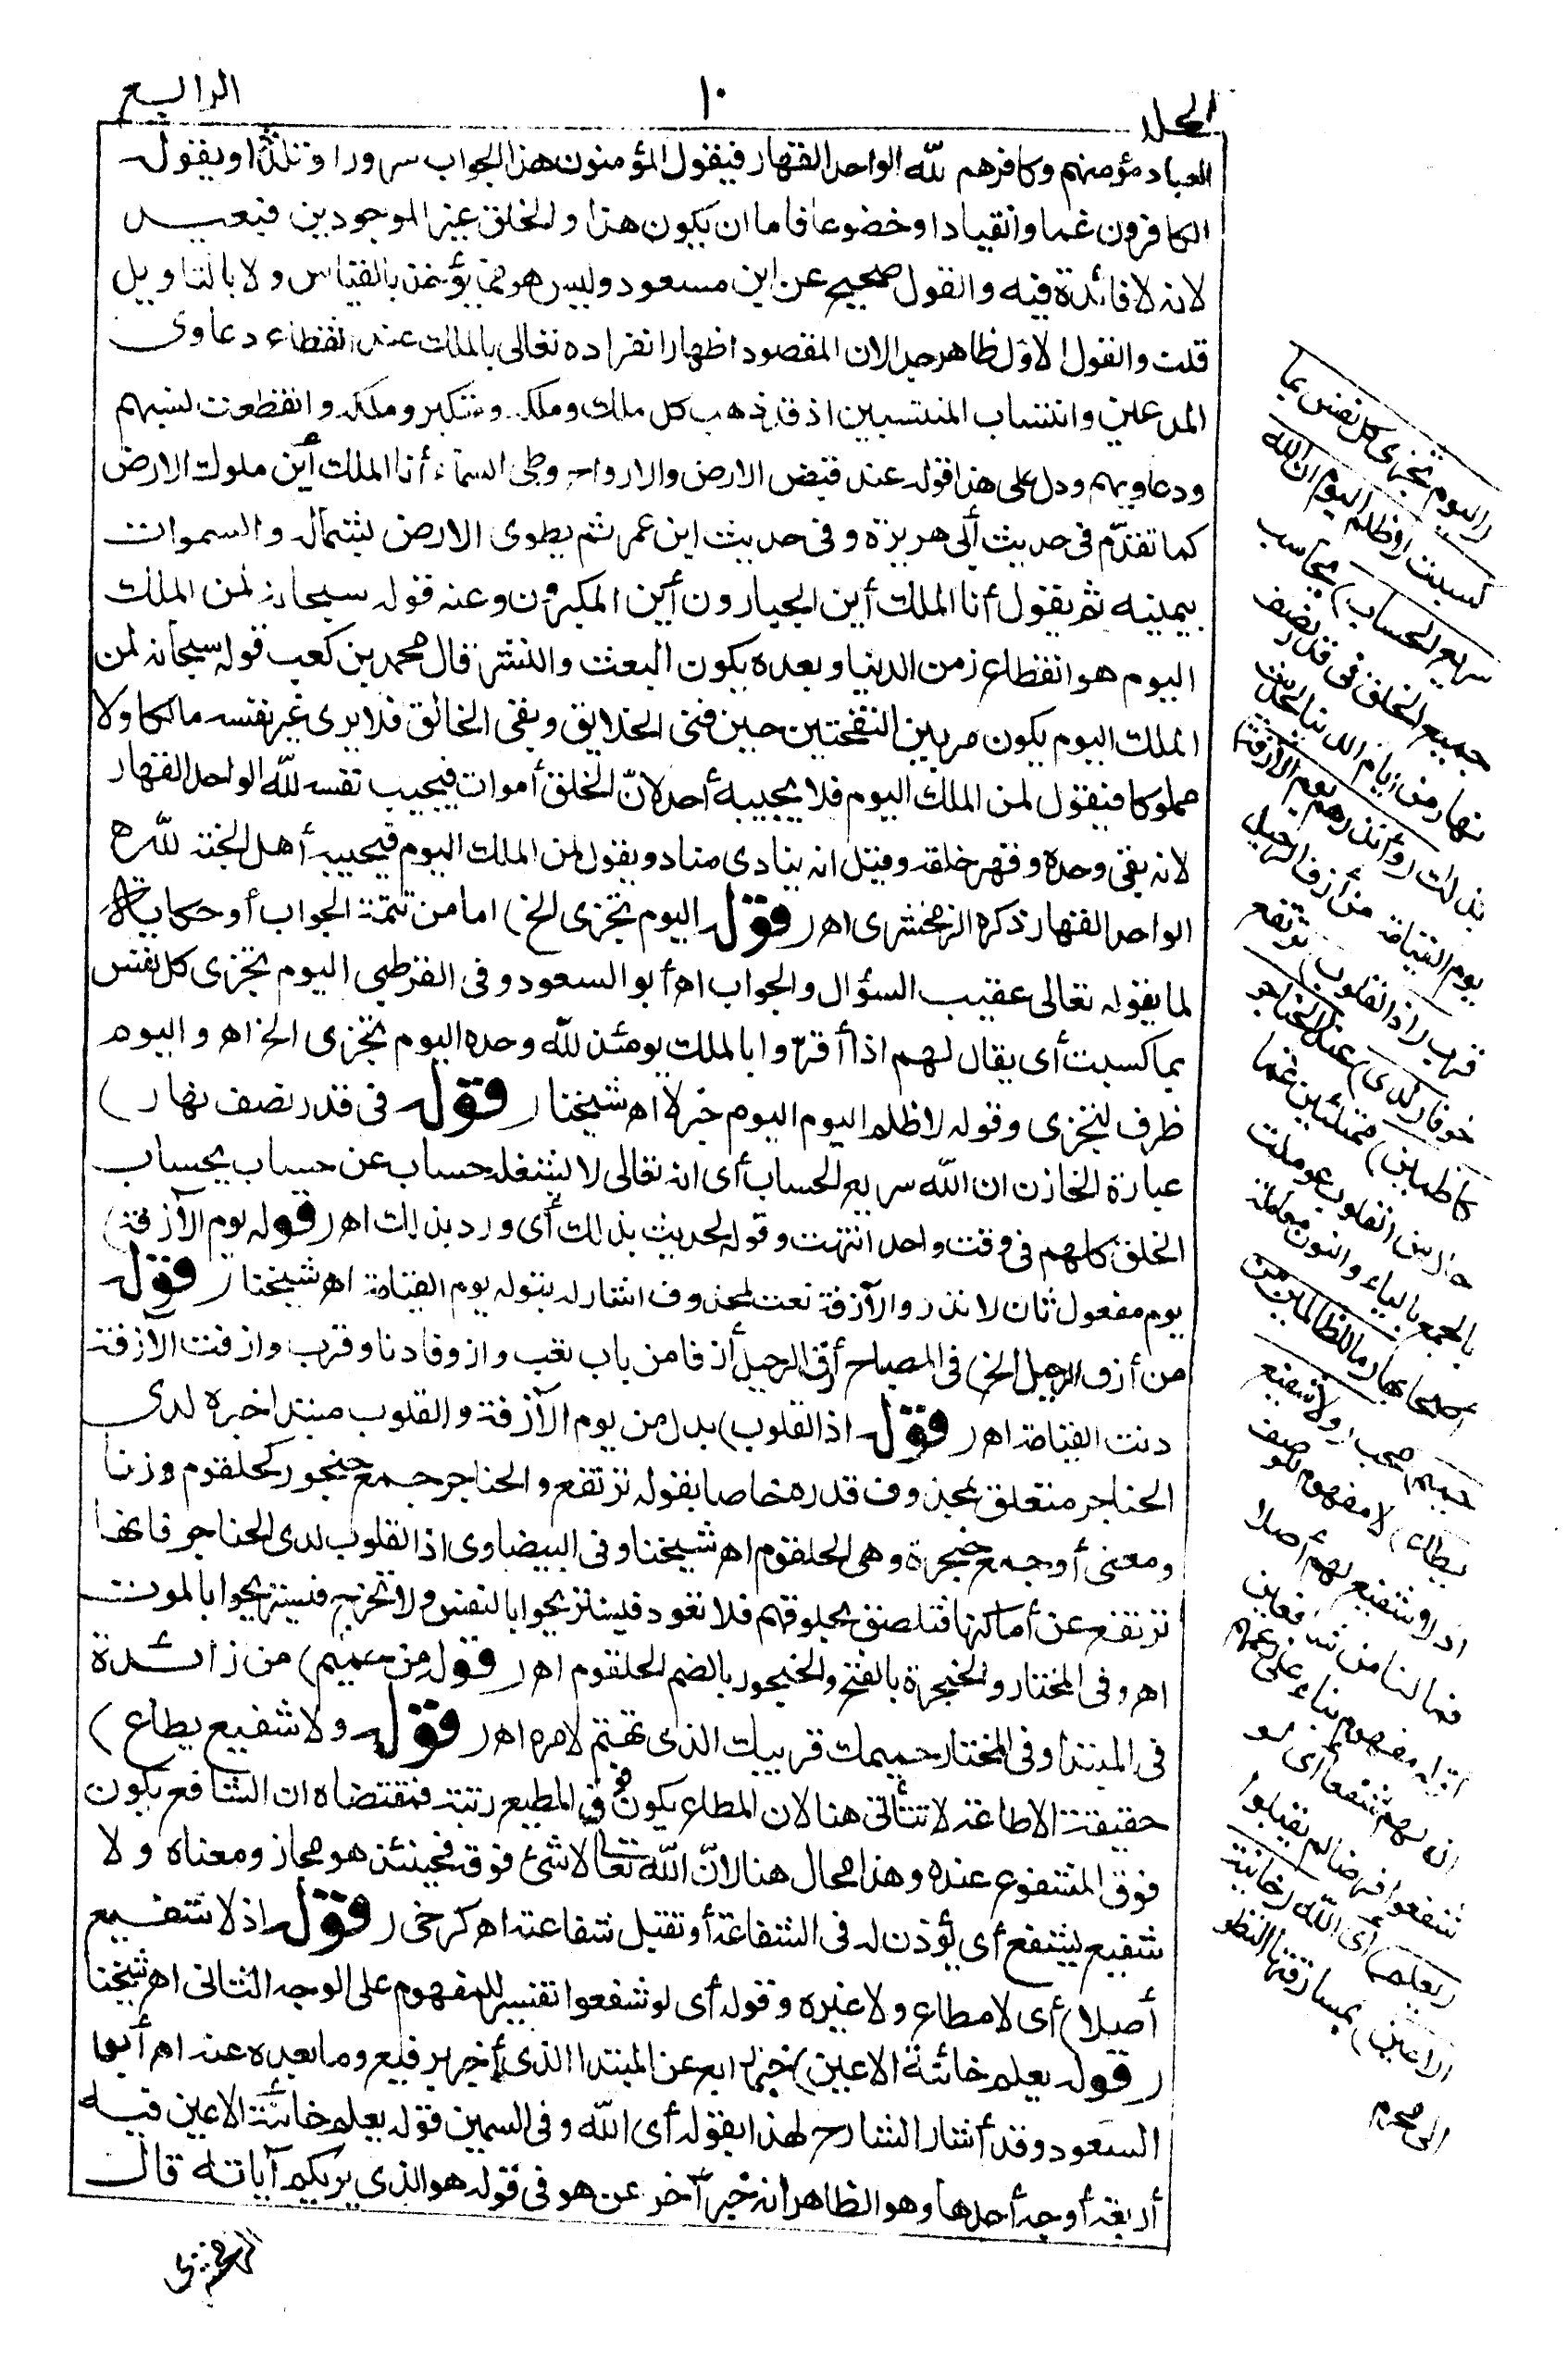 المجلد
١٠
الرابع
العباد مؤمنهم وكافرهم لله الواحد القهار فيقول المؤمنون هذا الجواب سرورا وتلذذا ويقول
الكافرون غما وانقيادا وخضوعا فاما ان يكون هذا والخلق غير الموجودين فبعيد
لانه لا فائدة فيه والقول صحيح عن ابن مسعود وليس هو مما يؤخذ بالقياس ولا بالتاويل
قلت والقول الاول ظاهر جدا لان المقصود اظهار انفراده تعالى بالملك عند انقطاع دعاوى
المدعين وانتساب المنتسبين اذ قد ذهب كل ملك وملكه ومتكبر وملكه وانقطعت نسبهم
ودعاويهم ودل على هذا قوله عند قبض الارض والارواح وطى السماء أنا الملك أين ملوك الارض
كما تقدّم فى حديث أبى هريرة وفى حديث ابن عمر ثم يطوى الارض بشماله والسموات
بيمينه ثم يقول أنا الملك أين الجبارون أين المكبرون وعنه قوله سبحانه لمن الملك
اليوم هو انقطاع زمن الدنيا وبعده يكون البعث والنشر قال محمد بن كعب قوله سبحانه لمن
الملك اليوم يكون من بين النفختين حين فنى الخلايق وبقى الخالق فلا يرى غير نفسه مالكا ولا
مملوكا فيقول لمن الملك اليوم فلا يجيبه أحد لانّ الخلق أموات فيجيب نفسه لله الواحد القهار
لانه بقى وحده وقهر خلقه وقيل انه ينادى مناد ويقول لمن الملك اليوم فيجيبه أهل الجنة لله
الواحد القهار ذكره الزمخشرى اهـ (قوله اليوم تجزى الخ) اما من تتمة الجواب أو حكاية
لما يقوله تعالى عقيب السؤال والجواب اهـ أبو السعود وفى القرطبى اليوم تجزى كل نفس
بما كسبت أى يقال لهم اذا أقرّوا بالملك يومئذ لله وحده اليوم تجزى الخ اهـ واليوم
ظرف لتجزى وقوله لا ظلم اليوم اليوم خبر لا اهـ شيخنا (قوله فى قدر نصف نهار)
عبارة الخازن ان الله سريع الحساب أى انه تعالى لا يشغله حساب عن حساب يحساب
الخلق كلهم فى وقت واحد انتهت وقوله لحديث بذلك أى ورد بذلك اهـ (قوله يوم الآزفة)
يوم مفعول ثان لانذر والآزفة نعت لمحذوف اشار له بقوله يوم القيامة اهـ شيخنا (قوله
من أزف الرحيل الخ) فى المصباح أزف الرحيل أزفا من باب تعب وازوفا دنا وقرب وازفت الآزفة
دنت القيامة اهـ (قوله اذ القلوب) بدل من يوم الآزفة والقلوب مبتدا خبره لدى
الحناجر متعلق بمحذوف قدره خاصا بقوله ترتفع والحناجر جمع حنجور كحلقوم وزنا
ومعنى أو جمع حنجرة وهى الحلقوم اهـ شيخنا وفى البيضاوى اذ القلوب لدى الحناجر فانها
ترتفع عن أماكنها فتلصق بحلوقهم فلا تعود فيستريحوا بالنفس ولا تخرج فيستريحوا بالموت
اهـ وفى المختار والحنجرة بالفتح والحنجور بالضم الحلقوم اهـ (قوله من حميم) من زائدة
فى المبتدا وفى المختار حميمك قريبك الذى تهتم لامره اهـ (قوله ولا شفيع يطاع)
حقيقة الاطاعة لا تتأتى هنا لان المطاع يكون فوق المطيع رتبة فمقتضاه ان الشافع يكون
فوق المشفوع عنده وهذا محال هنا لانّ الله تعالى لا شئ فوقه فحينئذ هو مجاز ومعناه ولا
شفيع يشفع أى يؤذن له فى الشفاعة أو تقبل شفاعته اهـ كرخى (قوله اذ لا شفيع
أصلا) أى لا مطاع ولا غيره وقوله أى لو شفعوا تفسير للمفهوم على الوجه الثانى اهـ شيخنا
(قوله يعلم خائنة الاعين) خبر رابع عن المبتدا الذى أخبر برفيع وما بعده عنه اهـ أبو
السعود وقد أشار الشارح لهذا بقوله أى الله وفى السمين قوله يعلم خائنة الاعين فيه
أربعة أوجه أحدها وهو الظاهر انه خبر آخر عن هو فى قوله هو الذى يريكم آياته قال
الزمخشرى
(اليوم تجزى كل نفس بما
كسبت لا ظلم اليوم ان الله
سريع الحساب) يحاسب
جميع الخلق فى قدر نصف
نهار من ايام الدنيا لحديث
بذلك (وأنذرهم يوم الآزفة)
يوم القيامة من أزف الرحيل
قرب (اذ القلوب) ترتفع
خوفا (لدى) عند (الحناجر
كاظمين) ممتلئين غما
حال من القلوب عوملت
بالجمع بالياء والنون معاملة
أصحابها (ما للظالمين من
حميم) محب (ولا شفيع
يطاع) لا مفهوم للوصف
اذ لا شفيع لهم أصلا
فما لنا من شافعين
أوله مفهوم بناء على زعمهم
ان لهم شفعاء أى لو
شفعوا فرضا لم يقبلوا
(يعلم) أى الله (خائنة
الاعين) بمسارقتها النظر
الى محرم